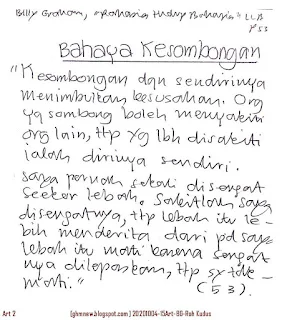 Billy Graham, "Rahasia Hidup Bahagia" LLB
p 53
Bahaya Kesombongan
"Kesombongan dgn sendirinya
menimbulkan kesusahan. Org
yg sombong boleh menyakiti
org lain, ttp yg lbh disakiti
ialah dirinya sendiri.
Saya pernah sekali disengat
seekor lebah. Sakitlah saya
disengatnya, ttp lebah itu le-
bih menderita dari pd saya
lebah itu mati karena sengat
nya dilepaskan, ttp sy tdk
mati."
(53).
Art 2
[ghmnew.blogspot.com] 20201004-15Art-BG-Roh Kudus